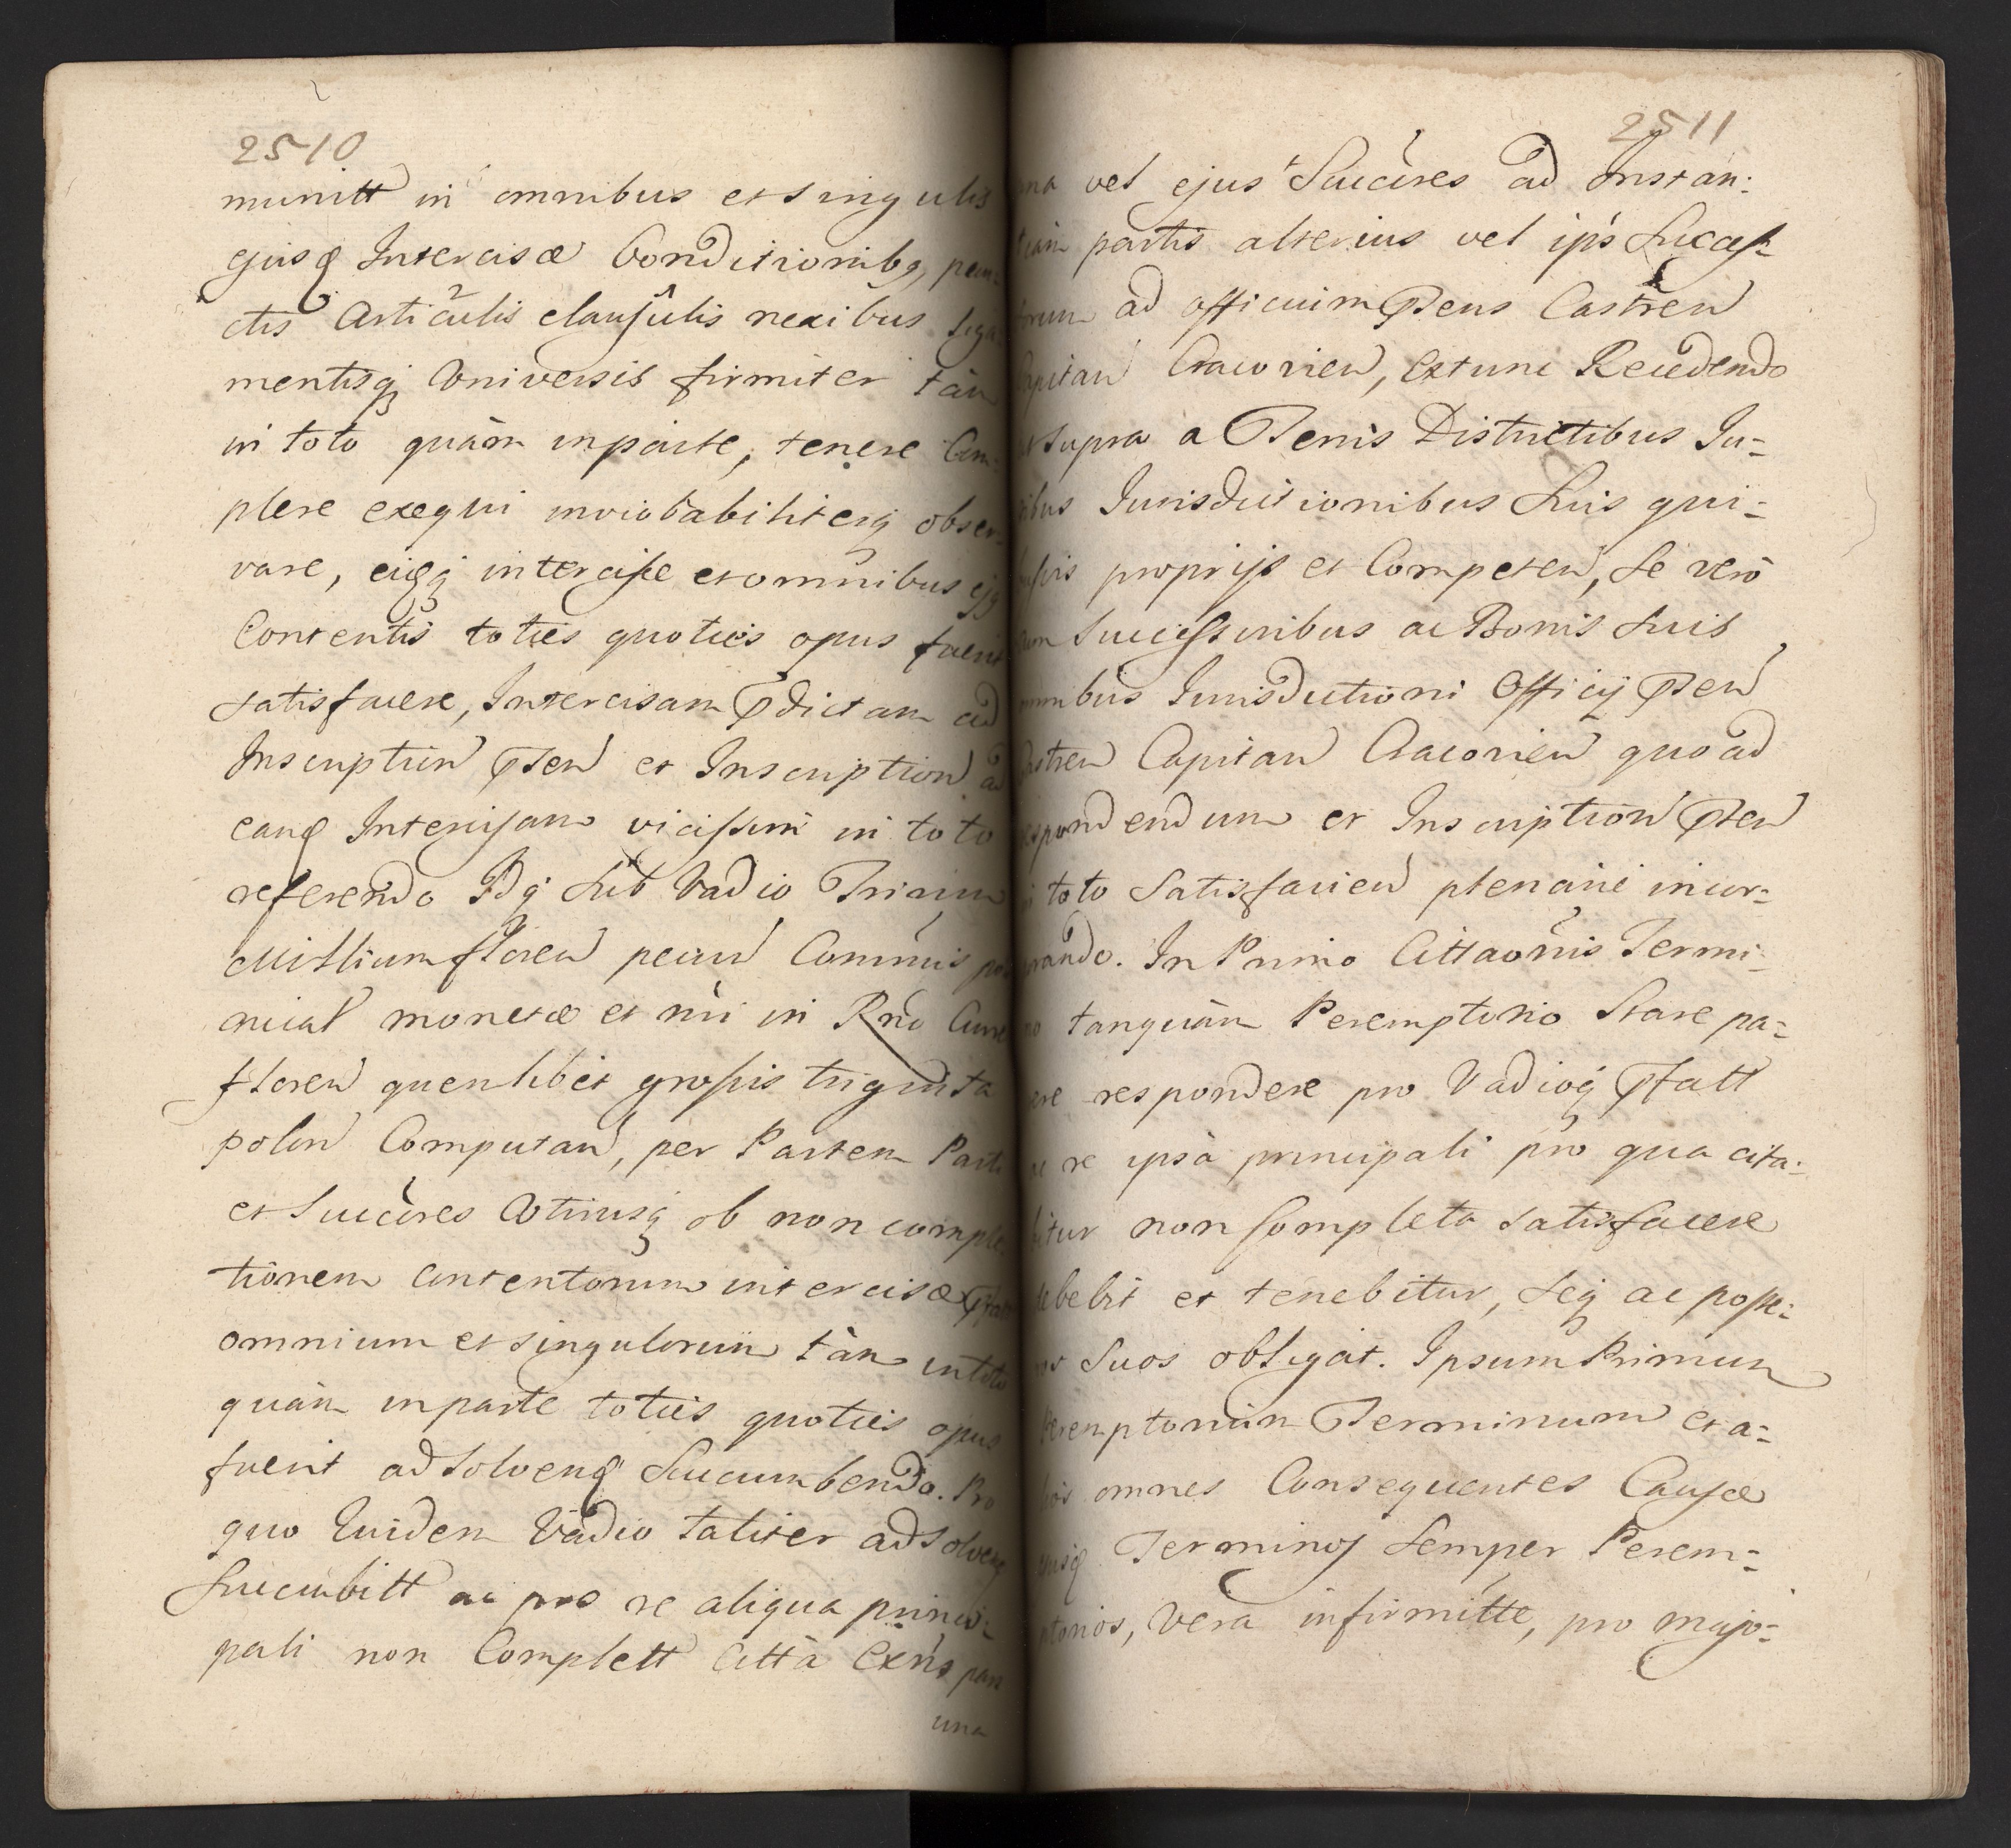 2510
munitt in omnibus et singulis
ejusq Intercisæ Conditionibq, pun-
ctis Articulis clausulis nexibus liga-
mentisqj Vniversis firmiter tàm
in toto quàm inparte, tenere Com-
plere exequi inviolabiliterq obser-
vare, eiqqj intercisæ et omnibus ejq
Contentis toties quoties opus fuerit
satisfacere, Intercisam Pdictam ad
Inscription Psen et Inscription ad
eanq Intercisam vicissim in toto
referendo Idq Sub Vadio Trium
Millium floren pecun Commis po-
nical monetæ et nri in Rno Curre
floren quenlibet grossis triginta
polon Computan, per Partem Parti
et Succeres Vtriusq ob non comple
tionem Contentorum intercisæ Pfat
omnium et singulorum tàm in toto
quàm inparte toties quoties opus
fuerit adsolvenq Succumbendo. Pro
quo quidem Vadio taliter adsolvenq
Succumbitt ac pro re aliqua princi-
pali non Complett Citta Exns pars
una
2511
una vel ejus Succeres ad Instan-
tiam partis alterius vel ips Success-
orum ad officium Psens Castren
Capitan Cracovien, extunc Recedendo
ut supra a Terris Districtibus Ju-
ribus Jurisdictionibus Suis qui-
busvis proprijs et Competen, Se verò
cum Successoribus ac Bonis Suis
omnibus Jurisdictioni Officij Psen
Castren Capitan Cracovien quoad
respondendum et Inscription Psen
in toto Satisfacien plenariè incor-
porando. In Primo Cittaonis Termi-
no tanquàm Peremptorio Stare pa-
rere respondere pro Vadioq Pfatt
ac re ipsâ principali pro qua cita-
bitur non Completa satisfacere
debebit et tenebitur, Seq ac poste-
ros Suos obligat. Ipsum Primum
Peremptorium Terminum et a-
lios omnes Consequentes Causæ
cujusq Terminos Semper Perem-
ptorios, Vera infirmitte, pro majo-